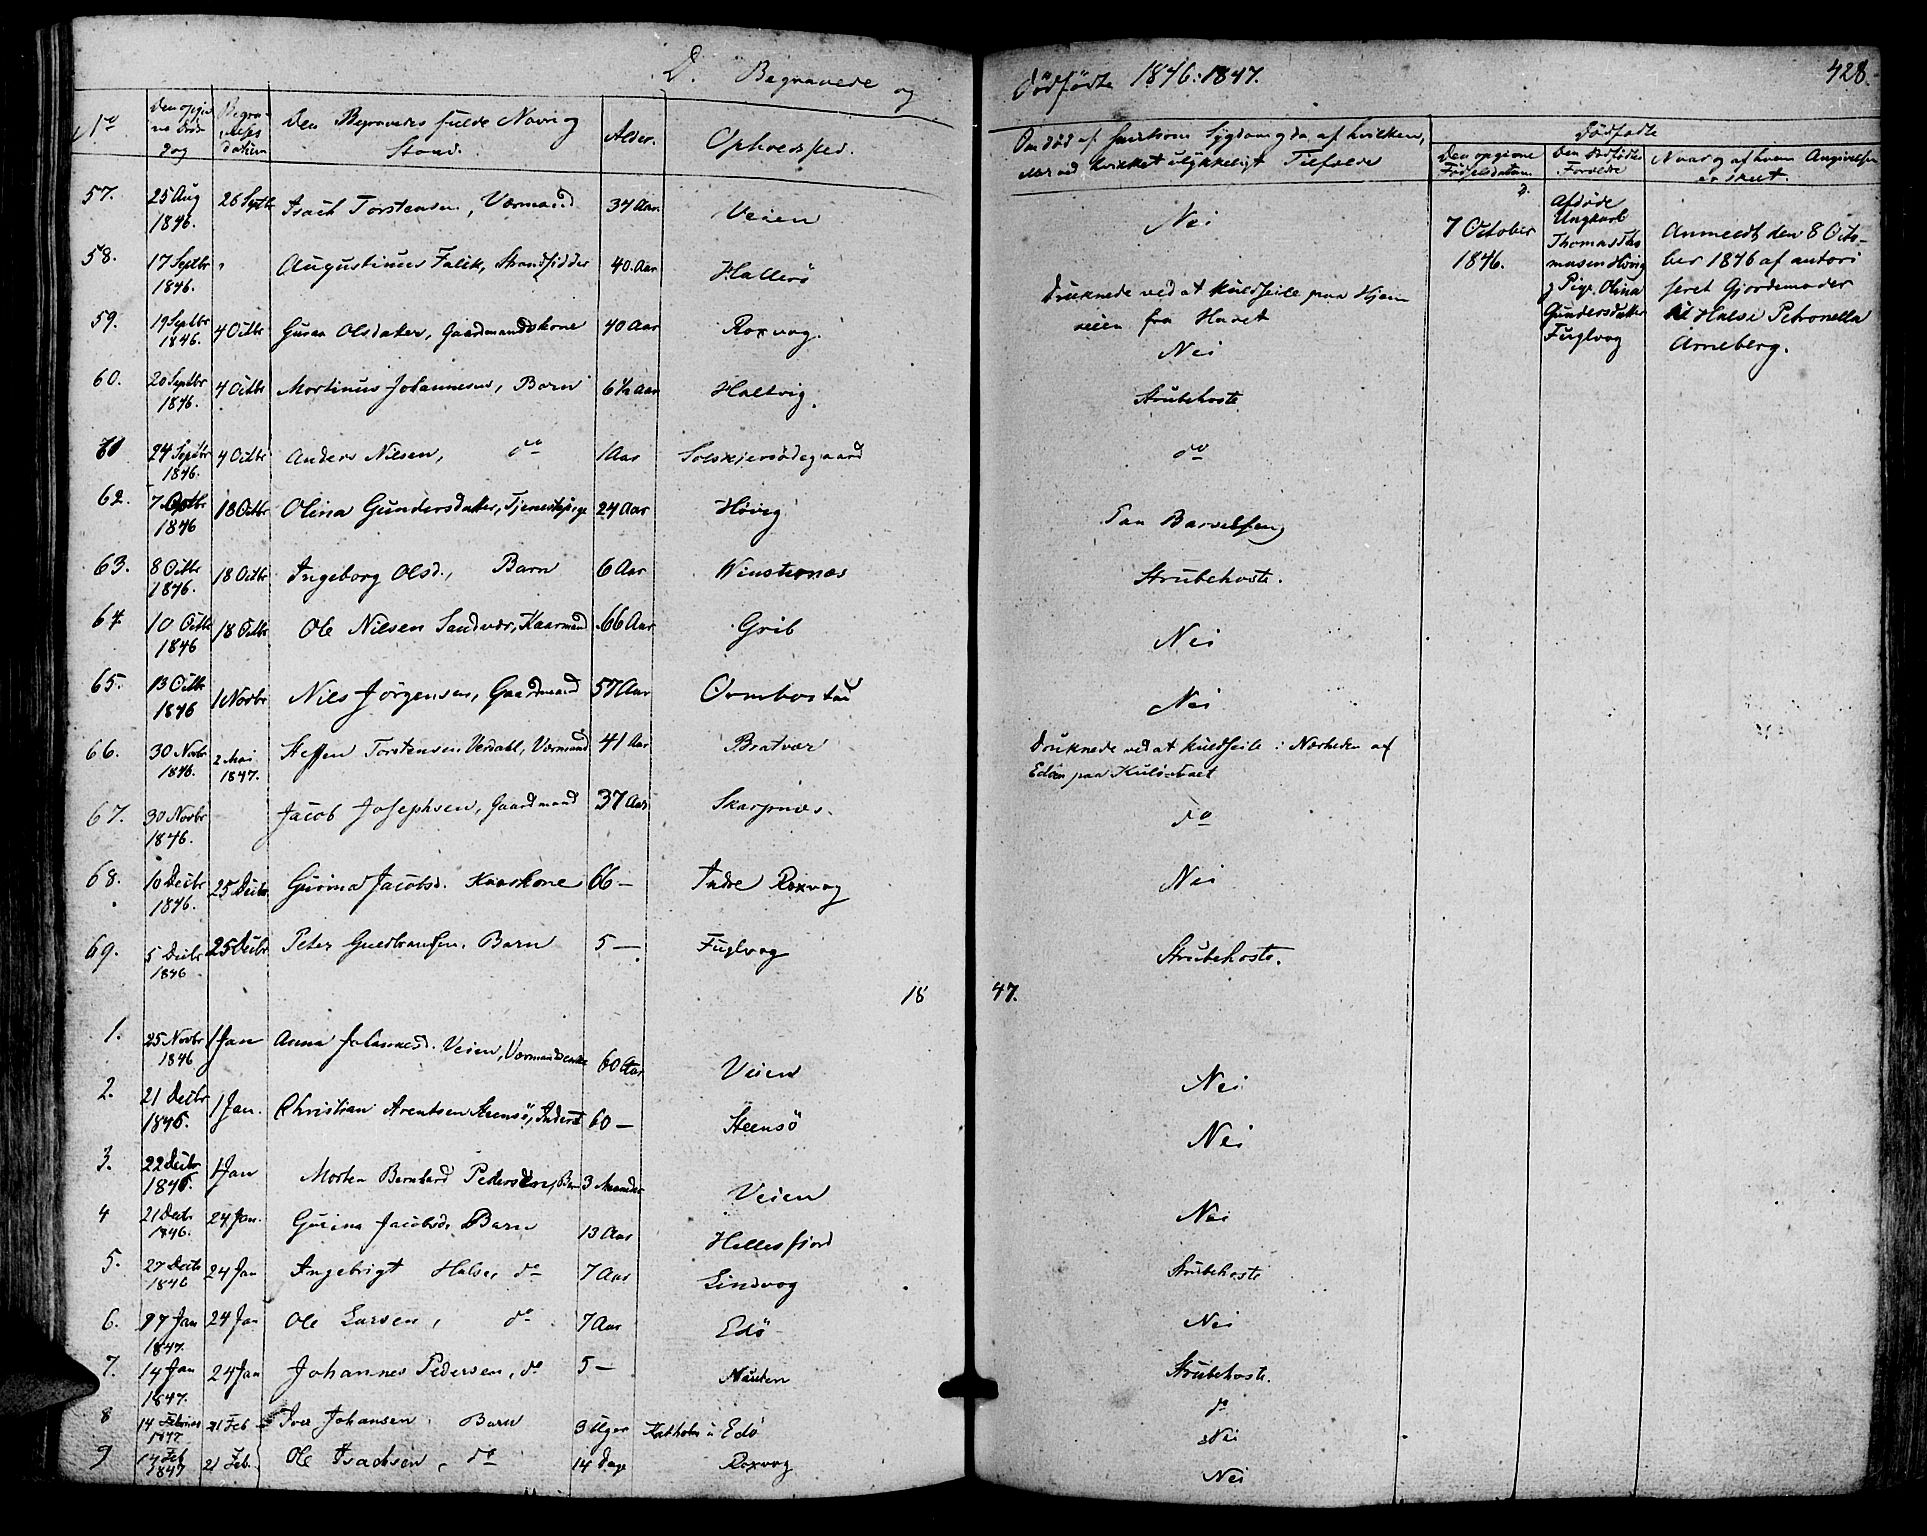 D. Begravede og Dödfödte 1846-1847. 428.
No Den opgivne Döds dag Begravelses datum Den Begravedes fulde Navn og Stand. Alder. Opholdssted.
Om död af smitsom Sygdom, og da af hvilken, eller ved hvilket ulykkeligt Tilfælde
Dødfødte
Den opgivne Födselsdatum Den Dödfödtes Forældre Naar og af hvem Angivelsen er skeet.
57. 25 Aug 1846. 26 Septbr Isach Torstensen, Værmand 37 Aar. Veien Nei
58. 17 Septbr 1846. Augustinus Falik, Strandsidder 40 Aar Hallerö Druknede ved at kuldseile paa Hjemveien fra Havet
59. 19 Septbr 1846. 4 Octbr Guru Olsdatter, Gaardmandskone 40 Aar Roxvog. Nei
60. 20 Septbr 1846. 4 Octbr Martinus Johannesen, Barn 6½ Aar Haltvig. Strubehoste
61 24 Septbr 1846. 4 Octbr Anders Nilsen, do 1 Aar Solskjersödegaard do
62. 7 Octbr 1846 18 Octbr Olina Gundersdatter, Tjenestepige 24 Aar Hövig Paa Barselseng
63. 8 Octbr 1846. 18 Octbr Ingeborg Olsd., Barn 6 Aar Strubehoste.
64. 10 Octbr 1846 18 Octbr Ole Nilsen Sandvær, Kaarmand 66 Aar Grib Nei
65. 13 Octbr 1846 1 Novbr Nils Jörgensen, Gaardmand 57 Aar Ormbostad Nei
66. 30 Novbr 1846. 2 Mai 1847. Steffen Torstensen Verdahl, Værmand 41 Aar Bratvær Druknede ved at kuldseile i Nærheden af
Edöen paa
67. 30 Novbr 1846. Jacob Josephsen, Gaardmand 37 Aar Skarpnes. do
68. 10 Decbr 1846. 25 Decbr Gurina Jacobsd. Kaarkone 66 — Indre Roxvog Nei
69. 5 Decbr 1846 25 Decbr Peter Guldbrandsen. Barn 5 — Fuglvog Strubehoste.
7 October 1846.
Afdöde
Ungkarl
Thomas Thomasen Hövig
og Pige Olina
Gundersdatter
Fuglvog
Anmeldt den 8 Octo-
ber 1846 af autori
seret Gjordemoder
i Halse Petronella
Arneberg.
1847.
1. 25 Novbr 1846 1 Jan Anna Johannesd. Veien, Værmandsenke 60 Aar Veien Nei
2. 21 Decbr 1846. 1 Jan. Christian Arentsen Steensö, Inderst 60 — Steensö Nei
3. 22 Decbr 1846. 1 Jan Morten Bernhard Pedersen, Barn 3 Maaneder Veien Nei
4 21 Decbr 1846. 24 Jan. Gurina Jacobsd. Barn 13 Aar Hellesfjord Strubehoste
5. 27 Decbr 1846 24 Jan Ingebrigt Halse, do 7 Aar Lindvog Nei
6. 7 Jan 1847. 24 Jan Ole Larsen, do 7 Aar Edö Strubehoste.
7. 14 Jan 1847. 24 Jan Johannes Pedersen, do 5 — do
8 14 Februar 1847 21 Feb Iver Johansen. Barn 3 Uger Katholm i Edö Nei
9 14 Feb 1847 21 Feb. Ole Isachsen, do 14 Dage Roxvog Nei